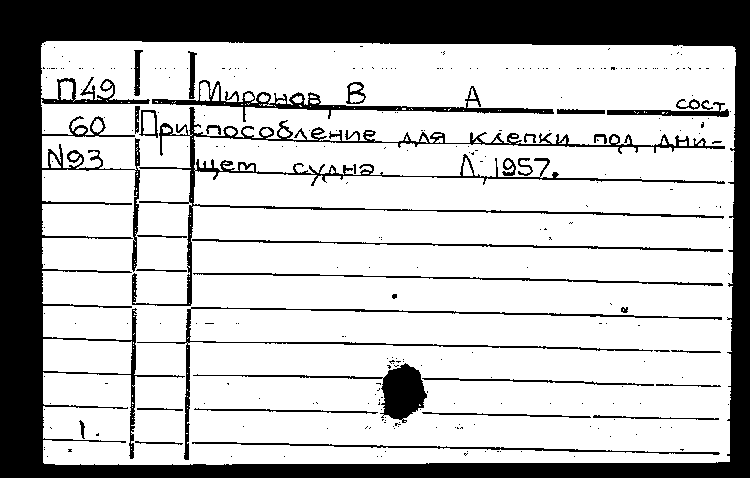 П49 Миронов, В А сост
60 Приспособление для клепки под дни-
N93 щем судна. Л, 1957.
1.